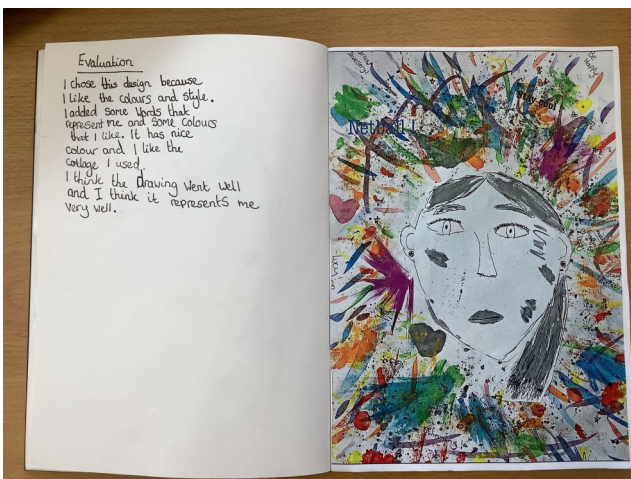 Evaluation
I chose this design because
I like the colours and style.
I added some words that
represent me and some colours
that I like. It has nice
colour and I like the
collage I used
I think the Drawing went well
and I think it represents me
very well.
Be
Happy
Netball!